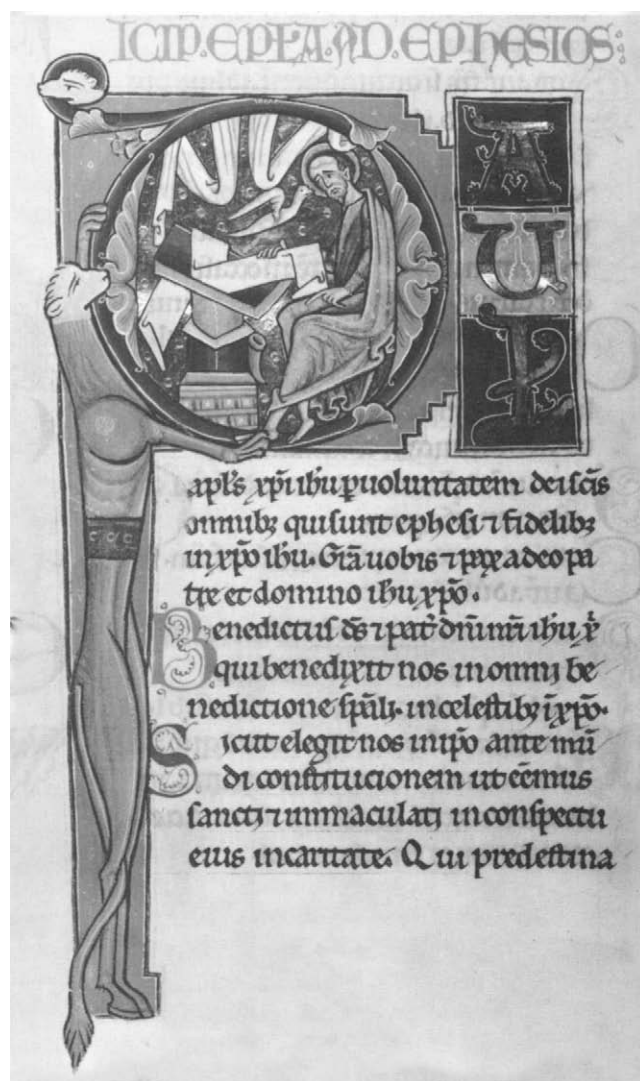 ICIP. EPLA. AD. EPHESIOS:
P
A
U
Ł
apl̄s xp̄i ih̄u ꝑ uoluntatem dei sc̄is
omnibꝫ qui sunt ephesi ⁊ fidelibꝫ
in xp̄o ih̄u. Gr̄a uobis ⁊ pax a deo pa
tre et domino ih̄u xp̄o.
Benedictus d̄s ⁊ pat̄ dn̄i nr̄i ih̄u x̄
qui benedixit nos in omni be
nedictione sp̄ali. in celestibꝫ ī xp̄o.
Sicut elegit nos in ip̄o ante mū
di constitucionem ut eēmus
sancti ⁊ immaculati in conspectu
eius in caritate. Qui predestina